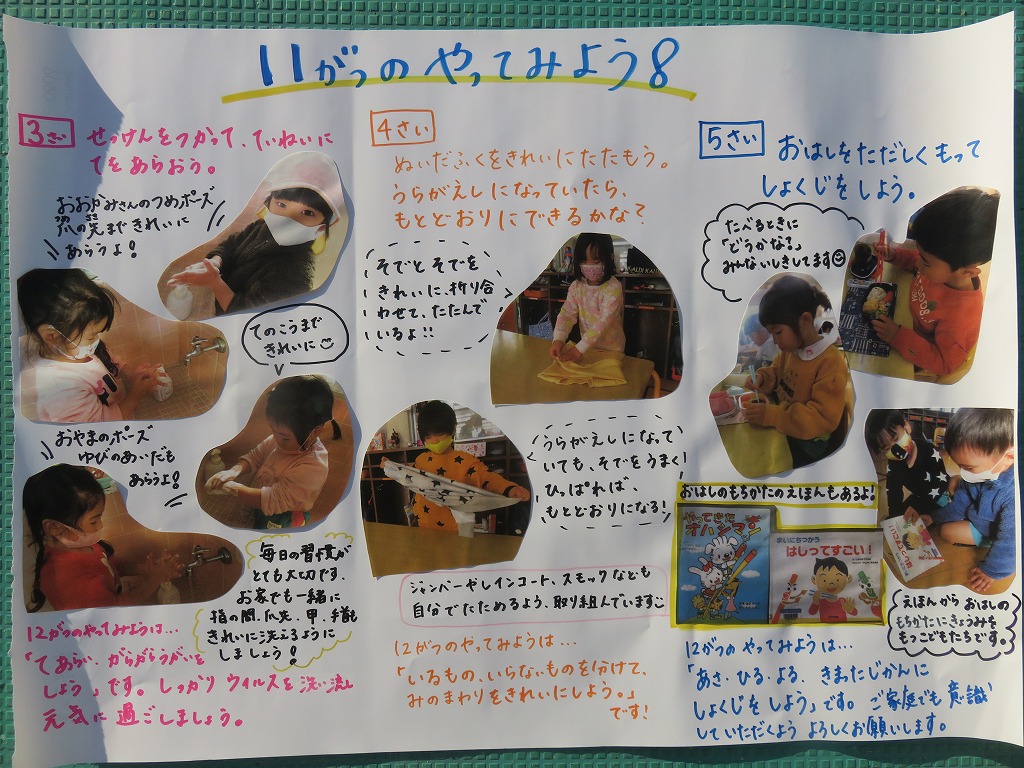 11がつの やってみよう8
3さい
せっけんをつかって、ていねいに
てをあらおう。
おおかみさんのつめポーズ
爪の先まできれいに
あらうよ!
てのこうまで
きれいに
おやまのポーズ
ゆびのあいだも
あらうよ!
毎日の習慣が
とても大切です。
お家でも一緒に
指の間、爪先、甲、手首も
きれいに洗えるように
しましょう!
12がつのやってみようは…
「てあらい、がらがらうがいを
しよう」です。しっかりウィルスを洗い流し
元気に過ごしましょう。
4さい
ぬいだふくをきれいにたたもう。
うらがえしになっていたら、
もとどおりにできるかな?
そでとそでを
きれいに折り合
わせて、たたんで
いるよ!!
うらがえしになって
いても、そでをうまく
ひっぱれば、
もとどおりになる!
ジャンパーやレインコート、スモックなども
自分でたためるよう、取り組んでいます
12がつのやってみようは…
「いるもの、いらないものを分けて、
みのまわりをきれいにしよう。」
です!
5さい
おはしをただしくもって
しょくじをしよう。
たべるときに
「どうかな?」
みんないしきしてます
おはしのもちかたのえほんもあるよ!
やってきた
オハシマン
まいにちつかう
はしってすごい!
えほんから おはしの
もちかたにきょうみを
もつこどもたちです。
12がつの やってみようは…
「あさ・ひる・よる、きまったじかんに
しょくじをしよう」です。ご家庭でも意識
していただくよう よろしくお願いします。